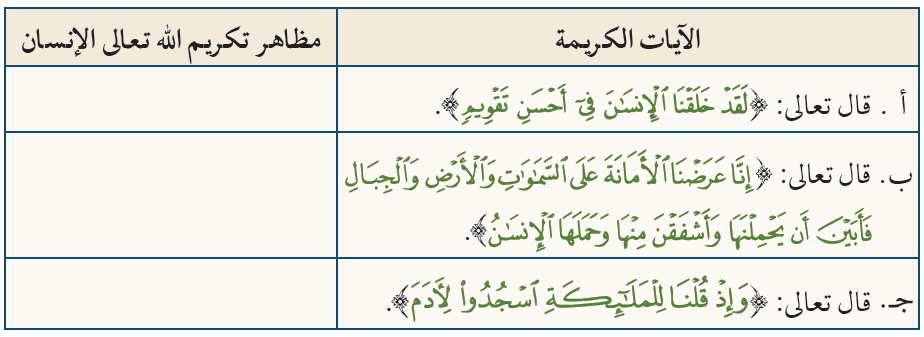 الآيات الكريمة
مظاهر تكريم الله تعالى الإنسان
أ . قال تعالى: ﴿لَقَدْ خَلَقْنَا ٱلْإِنسَـٰنَ فِىٓ أَحْسَنِ تَقْوِيمٍ﴾.
ب. قال تعالى: ﴿إِنَّا عَرَضْنَا ٱلْأَمَانَةَ عَلَى ٱلسَّمَـٰوَٰتِ وَٱلْأَرْضِ وَٱلْجِبَالِ
فَأَبَيْنَ أَن يَحْمِلْنَهَا وَأَشْفَقْنَ مِنْهَا وَحَمَلَهَا ٱلْإِنسَـٰنُ﴾.
جـ. قال تعالى: ﴿وَإِذْ قُلْنَا لِلْمَلَـٰٓئِكَةِ ٱسْجُدُوا۟ لِـَٔادَمَ﴾.